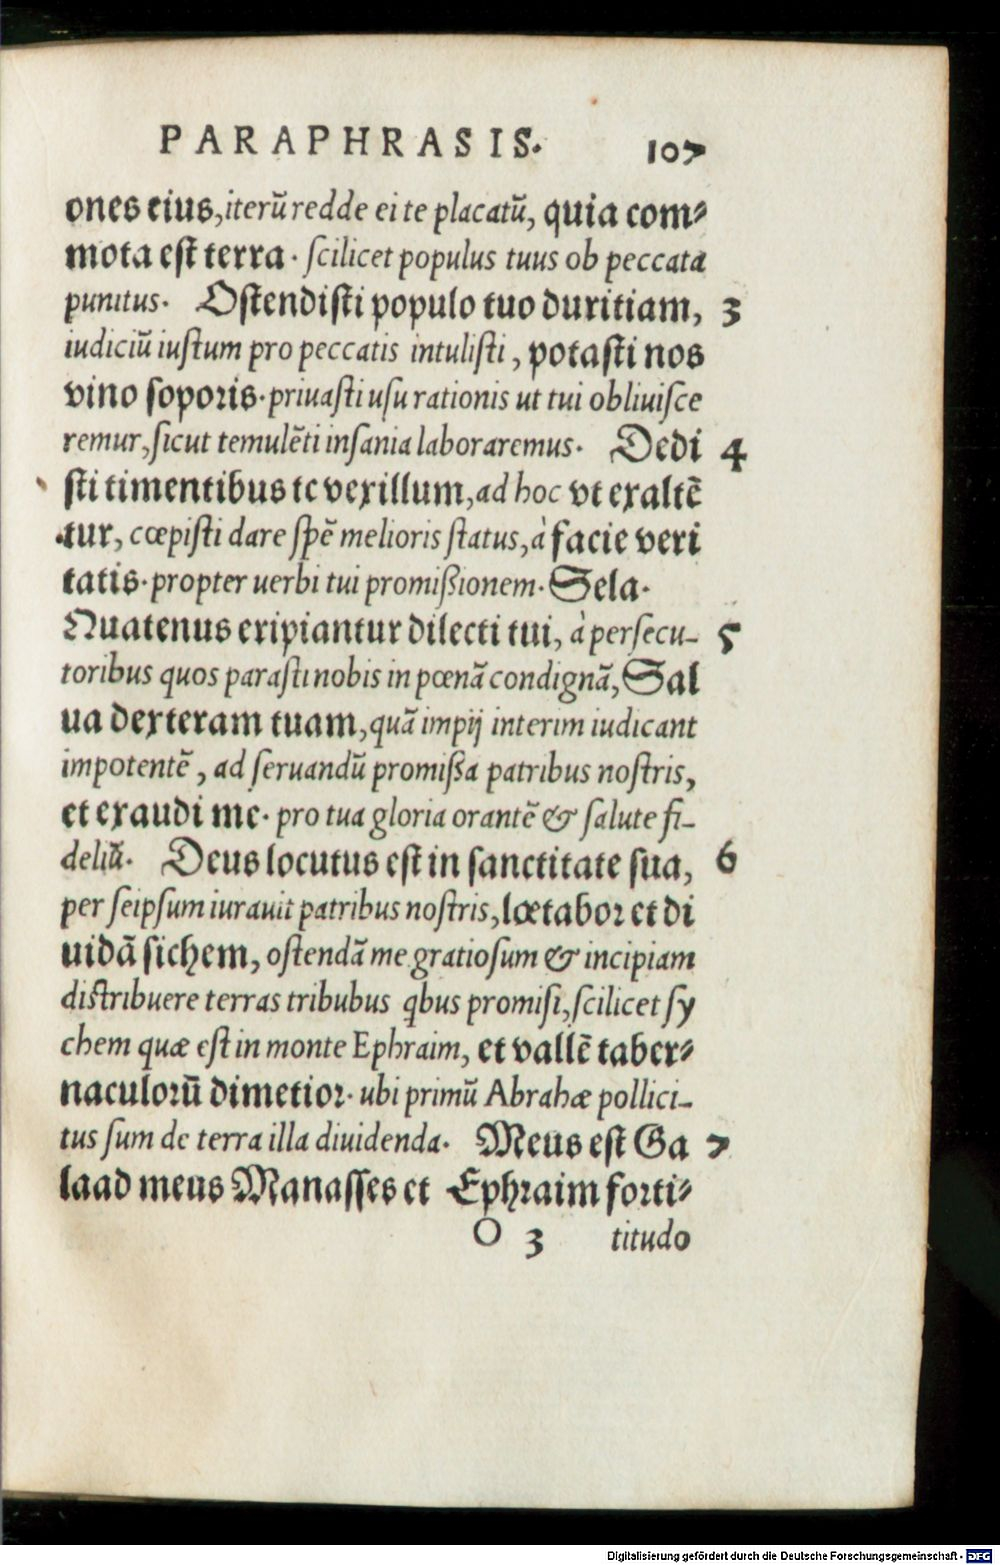 PARAPHRASIS. 107
ones eius, iterũ redde ei te placatũ, quia com⸗
mota est terra. scilicet populus tuus ob peccata
punitus. Ostendisti populo tuo duritiam, 3
iudiciũ iustum pro peccatis intulisti, potasti nos
vino soporis. priuasti usu rationis ut tui obliuisce
remur, sicut temulẽti insania laboraremus. Dedi 4
sti timentibus te vexillum, ad hoc vt exaltẽ
tur, cœpisti dare spẽ melioris status, à facie veri
tatis. propter uerbi tui promißionem. Sela.
Quatenus eripiantur dilecti tui, à persecu- 5
toribus quos parasti nobis in pœnã condignã, Sal
ua dexteram tuam, quã impij interim iudicant
impotentẽ, ad seruandũ promißa patribus nostris,
et exaudi me. pro tua gloria orantẽ & salute fi-
deliũ. Deus locutus est in sanctitate sua, 6
per seipsum iurauit patribus nostris, lœtabor et di
uidã sichem, ostendã me gratiosum & incipiam
distribuere terras tribubus qbus promisi, scilicet sy
chem quæ est in monte Ephraim, et vallẽ taber⸗
naculorũ dimetior. ubi primũ Abrahæ pollici-
tus sum de terra illa diuidenda. Meus est Ga 7
laad meus Manasses et Ephraim forti⸗
O 3 titudo
Digitalisierung gefördert durch die Deutsche Forschungsgemeinschaft - DFG